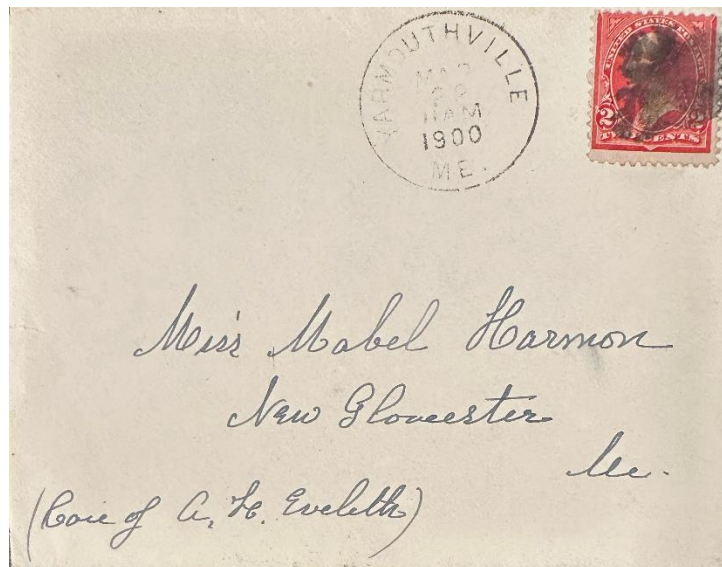 YARMOUTHVILLE
MAR
11 AM
1900
ME.
UNITED STATES POSTAGE
2 2
TWO CENTS
Miss Mabel Harmon
New Gloucester
Me.
(Care of A. H. Eveleth)